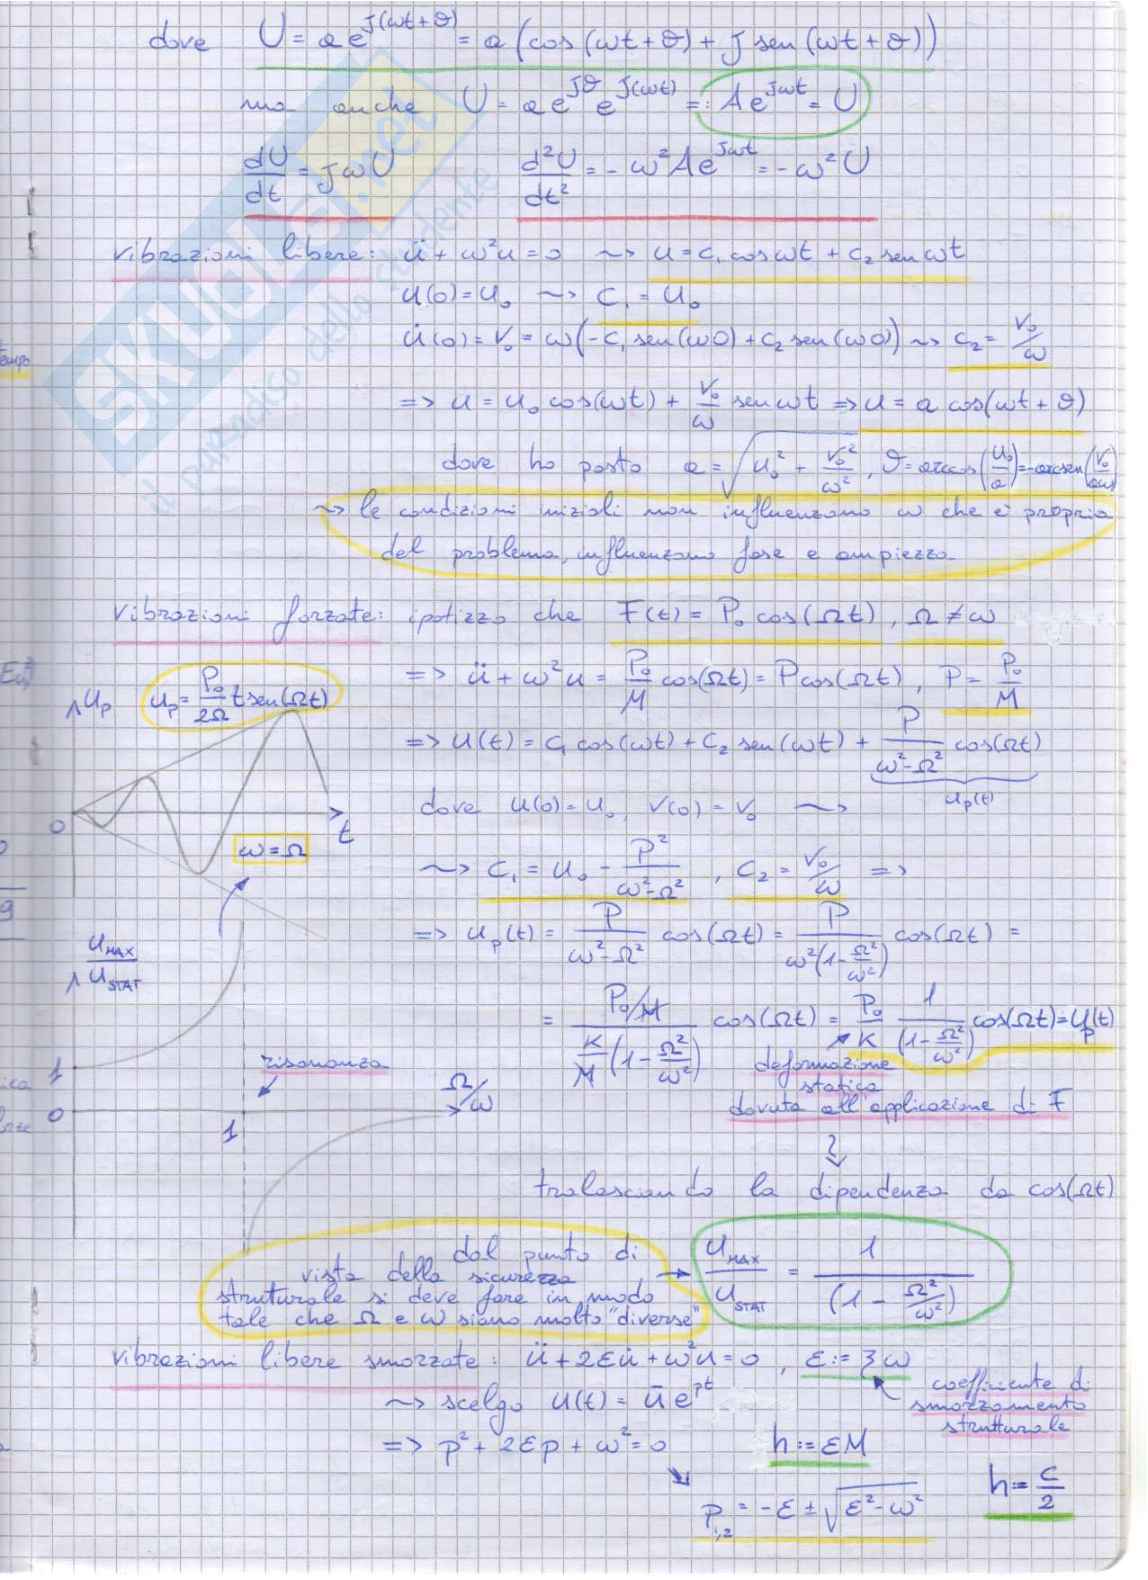 dove U = a e^{j(ωt+ϑ)} = a (cos (ωt+ϑ) + j sen (ωt+ϑ))
ma anche U = a e^{jϑ} e^{j(ωt)} =: A e^{jωt} = U
dU/dt = jωU d²U/dt² = -ω²Ae^{jωt} = -ω²U
vibrazioni libere: ü + ω²u = 0 ~> u = c₁ cos ωt + c₂ sen ωt
u(0) = u₀ ~> c₁ = u₀
u̇(0) = v₀ = ω(-c₁ sen(ω0) + c₂ sen(ω0)) ~> c₂ = v₀/ω
=> u = u₀ cos(ωt) + v₀/ω sen ωt => u = a cos(ωt + ϑ)
dove ho posto a = √(u₀² + v₀²/ω²), ϑ = arccos(u₀/a) = -arcsen(v₀/aω)
~> le condizioni iniziali non influenzano ω che è propria
del problema, influenzano fase e ampiezza
vibrazioni forzate: ipotizzo che F(t) = P₀ cos(Ωt), Ω ≠ ω
=> ü + ω²u = P₀/M cos(Ωt) = P cos(Ωt), P = P₀/M
u_p u_p = P₀/2Ω t sen(Ωt)
=> u(t) = c₁ cos(ωt) + c₂ sen(ωt) + P/(ω²-Ω²) cos(Ωt)
u_p(t)
0 t
dove u(0) = u₀, v(0) = v₀ ~>
ω = Ω
~> c₁ = u₀ - P²/(ω²-Ω²), c₂ = v₀/ω =>
=> u_p(t) = P/(ω²-Ω²) cos(Ωt) = P/(ω²(1-Ω²/ω²)) cos(Ωt) =
u_MAX/u_STAT
= (P₀/M)/(K/M (1-Ω²/ω²)) cos(Ωt) = P₀/K 1/(1-Ω²/ω²) cos(Ωt) = u_p(t)
1
risonanza
deformazione
statica
dovuta all'applicazione di F
0 1 Ω/ω
tralasciando la dipendenza da cos(Ωt)
dal punto di
vista della sicurezza
strutturale si deve fare in modo
tale che Ω e ω siano molto "diverse"
u_MAX/u_STAT = 1/(1 - Ω²/ω²)
vibrazioni libere smorzate: ü + 2εu̇ + ω²u = 0, ε := ξω
coefficiente di
smorzamento
strutturale
~> scelgo u(t) = ū e^{pt}
=> p² + 2εp + ω² = 0 h := εM
h := c/2
p₁,₂ = -ε ± √(ε²-ω²)
SKUOLA.net
il paradiso dello studente
tempo